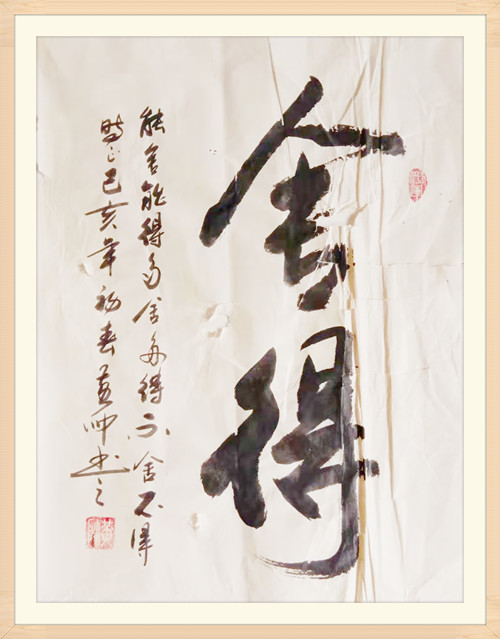 舍得
能舍能得多舍多得不舍不得
时在己亥年初春
书之